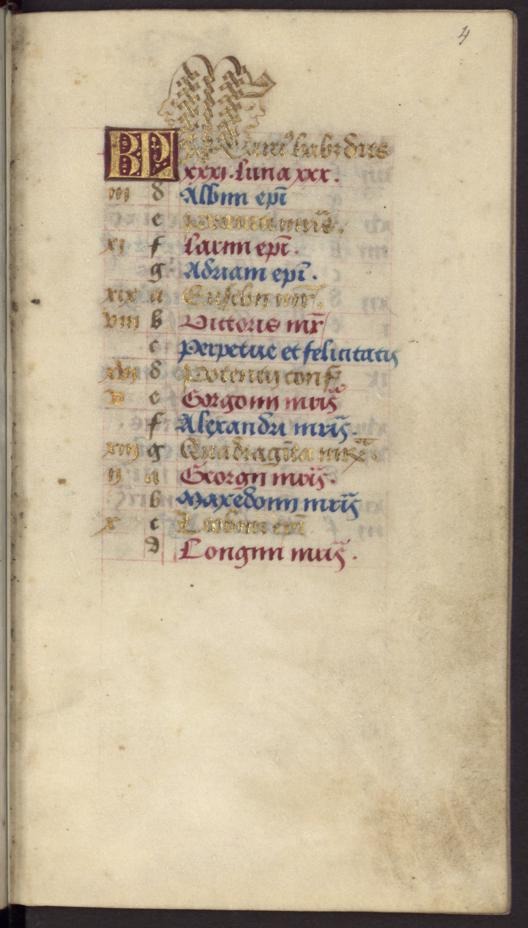 4
KL habet dies
xxxi. Luna xxx.
iii d Albini epi
e mris.
xi f Lucini epi.
g Adriani epi.
xix a Eusebii mr.
viii b Victoris mr
c Perpetue et felicitatis
xvi d Potencij conf
v e Gorgonii mris
f Alexandri mris.
xiii g Quadraginta
ii a Georgii mris.
b Maxedonii mris
x c epi
d Longini mris.